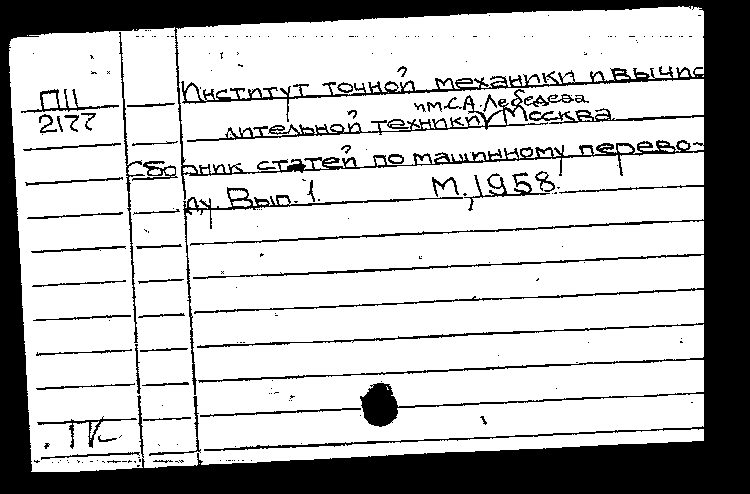 П11
2177
Институт точной механики и вычис
им. С.А. Лебедева
лительной техники, Москва
Сборник статей по машинному перево-
ду. Вып. 1. М., 1958.